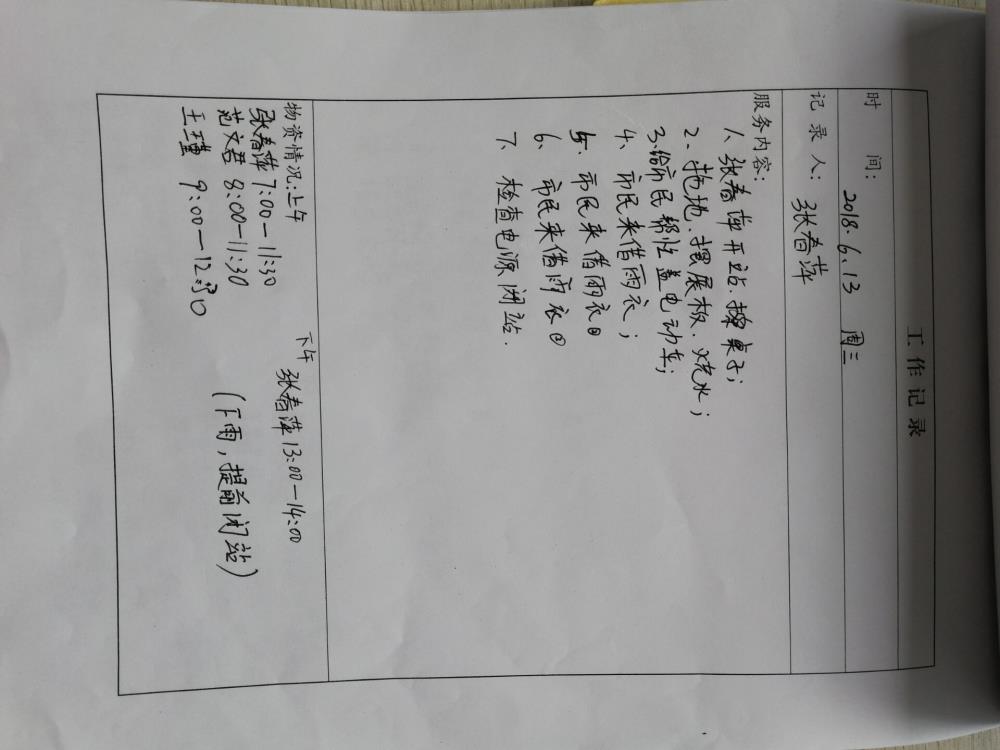 工作记录
时 间: 2018.6.13 周三
记录人: 张春萍
服务内容:
1、张春萍开站、擦桌子;
2、拖地、摆展板、烧水;
3、给市民帮忙盖电动车;
4、市民来借雨衣;
5、市民来借雨衣②
6、市民来借雨衣②
7、检查电源闭站.
物资情况:上午
张春萍 7:00—11:30
范文君 8:00—11:30
王瑾 9:00—12:30
下午
张春萍 13:00—14:00
(下雨,提前闭站)